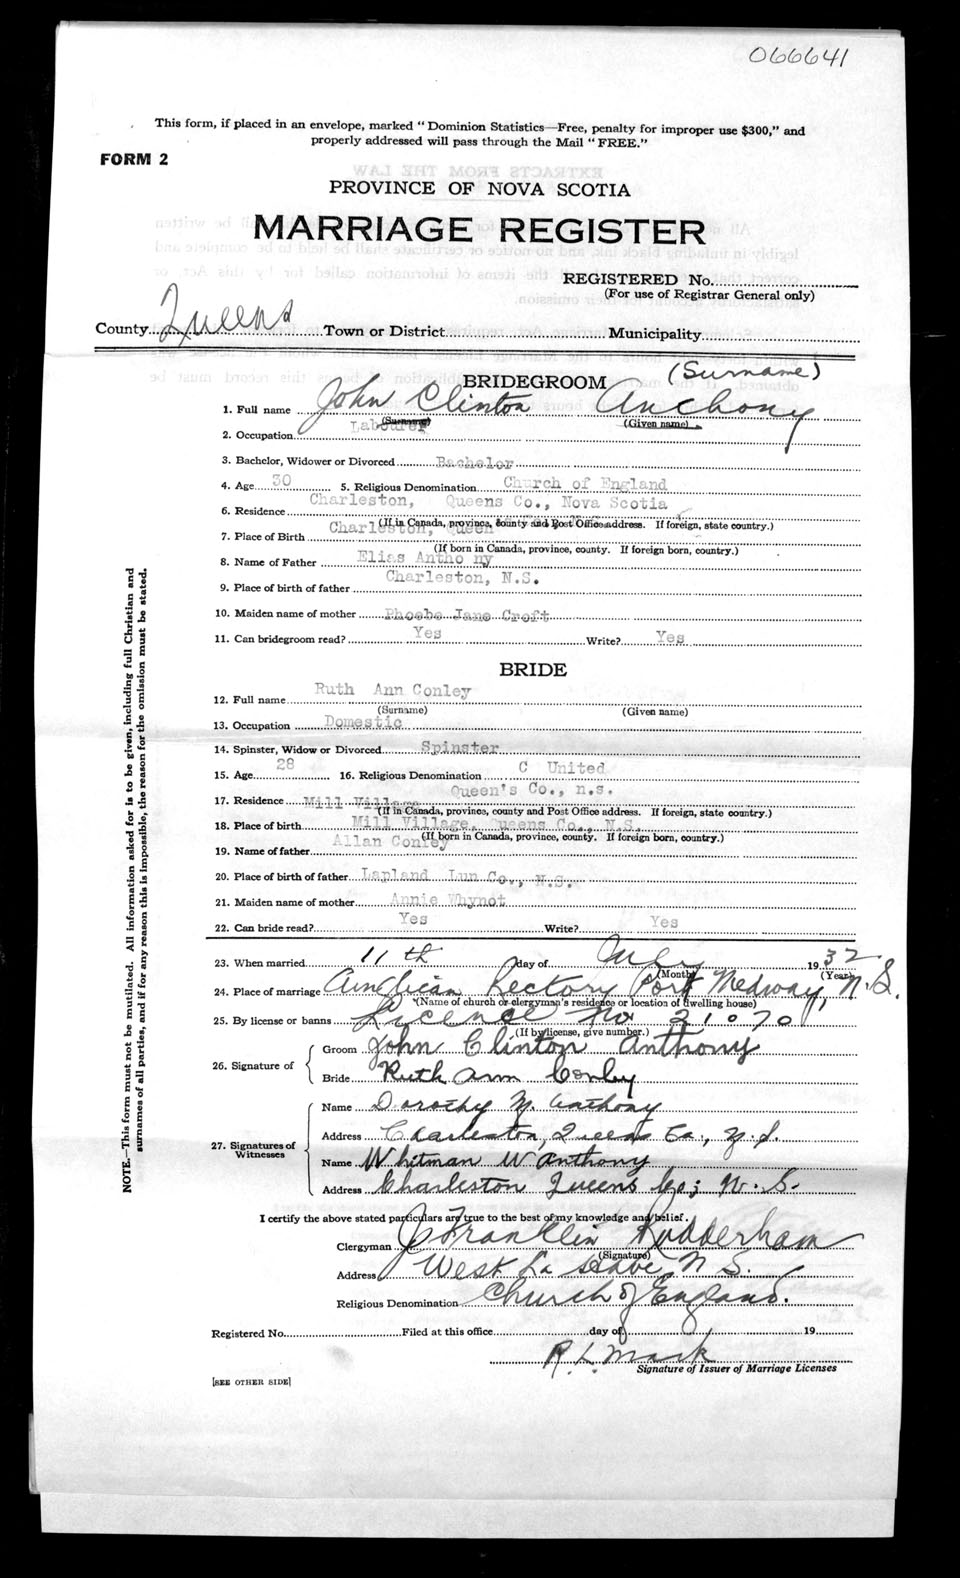 066641
This form, if placed in an envelope, marked "Dominion Statistics—Free, penalty for improper use $300," and
properly addressed will pass through the Mail "FREE."
FORM 2
PROVINCE OF NOVA SCOTIA
MARRIAGE REGISTER
REGISTERED No.
(For use of Registrar General only)
County Queens Town or District Municipality
BRIDEGROOM (Surname)
1. Full name John Clinton Anthony
(Surname) (Given name)
2. Occupation Labourer
3. Bachelor, Widower or Divorced Bachelor
4. Age 30 5. Religious Denomination Church of England
6. Residence Charleston, Queens Co., Nova Scotia
(If in Canada, province, county and Post Office address. If foreign, state country.)
7. Place of Birth Charleston, Queen
(If born in Canada, province, county. If foreign born, country.)
8. Name of Father Elias Antho ny
9. Place of birth of father Charleston, N.S.
10. Maiden name of mother Phoebe Jane Croft
11. Can bridegroom read? Yes Write? Yes
BRIDE
12. Full name Ruth Ann Conley
(Surname) (Given name)
13. Occupation Domestic
14. Spinster, Widow or Divorced Spinster
15. Age 28 16. Religious Denomination C United
17. Residence Mill Village Queen's Co., n.s.
(If in Canada, province, county and Post Office address. If foreign, state country.)
18. Place of birth Mill Village, Queens Co., N.S.
(If born in Canada, province, county. If foreign born, country.)
19. Name of father Allan Conley
20. Place of birth of father Lapland Lun Co., N.S.
21. Maiden name of mother Annie Whynot
22. Can bride read? Yes Write? Yes
23. When married 11th day of July 1932
(Month) (Year)
24. Place of marriage Anglican Rectory Port Medway, N.S.
(Name of church or clergyman's residence or location of dwelling house)
25. By license or banns Licence No 21070
(If by license, give number.)
26. Signature of Groom John Clinton Anthony
Bride Ruth Ann Conley
27. Signatures of Witnesses
Name Dorothy M. Anthony
Address Charleston, Queens Co., N.S.
Name Whitman W Anthony
Address Charleston Queens Co; N.S.
I certify the above stated particulars are true to the best of my knowledge and belief.
Clergyman J Franklin Rudderham
(Signature)
Address West La Have, N S.
Religious Denomination Church of England.
Registered No. Filed at this office day of 19
R. L. Mack
Signature of Issuer of Marriage Licenses
[SEE OTHER SIDE]
NOTE.—This form must not be mutilated. All information asked for is to be given, including full Christian and
surnames of all parties, and if for any reason this is impossible, the reason for the omission must be stated.